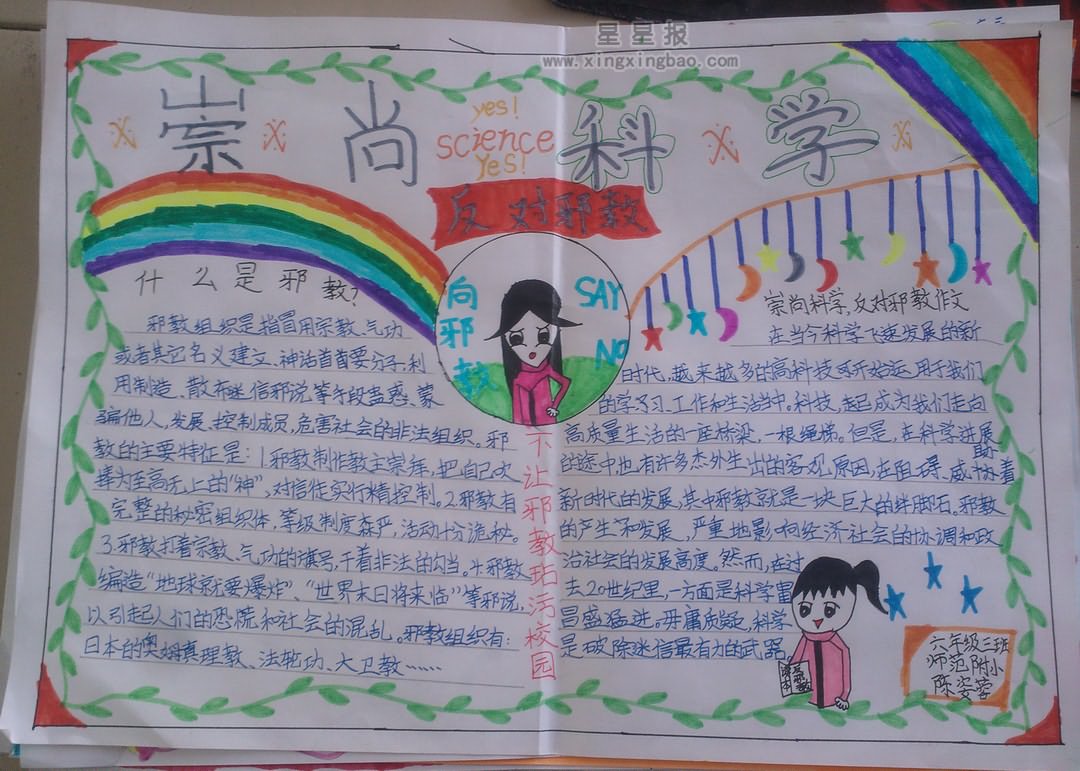 星星报
www.xingxingbao.com
崇尚科学
yes!
science
Yes!
反对邪教
什么是邪教?
邪教组织是指冒用宗教、气功
或者其它名义建立、神话首要分子,利
用制造、散布迷信邪说等手段蛊惑、蒙
骗他人,发展、控制成员,危害社会的非法组织。邪
教的主要特征是:1.邪教制作教主崇拜,把自己吹
捧为至高无上的“神”,对信徒实行精控制。2.邪教有
完整的秘密组织体,等级制度森严,活动十分诡秘。
3.邪教打着宗教、气功的旗号,干着非法的勾当。4.邪教
编造“地球就要爆炸”、“世界末日将来临”等邪说,
以引起人们的恐慌和社会的混乱。邪教组织有:
日本的奥姆真理教、法轮功、大卫教……
向邪教
SAY
NO
不让邪教玷污校园
崇尚科学,反对邪教作文
在当今科学飞速发展的新
时代,越来越多的高科技开始运用于我们
的学习、工作和生活当中,科技,起已成为我们走向
高质量生活的一座桥梁,一根绳梯。但是,在科学进展
的途中也有许多杰外生出的客观原因在阻碍、威胁着
新时代的发展,其中邪教就是一块巨大的绊脚石,邪教
的产生和发展,严重地影响经济社会的协调和政
治社会的发展高度。然而,在过
去20世纪里,一方面是科学雷
昌盛猛进。毋庸质疑,科学
是破除迷信最有力的武器。
六年级三班
师范附小
陈姿蓉